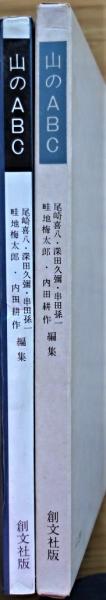 山のABC
尾崎喜八・深田久彌・串田孫一
畦地梅太郎・内田耕作 編集
創文社版
山のABC
尾崎喜八・深田久彌・串田孫一
畦地梅太郎・内田耕作 編集
創文社版